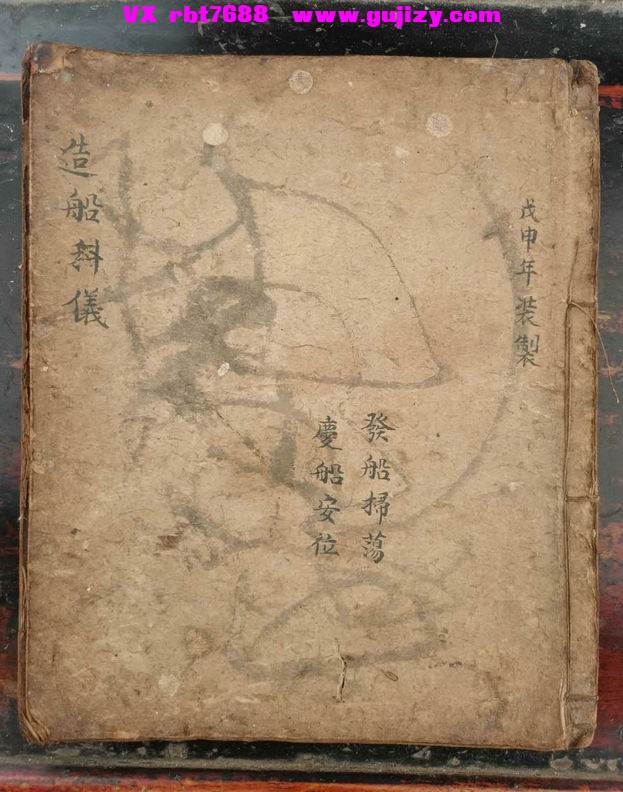 VX rbt7688 www.gujizy.com
戊申年装製
發船掃蕩
慶船安位
造船科儀